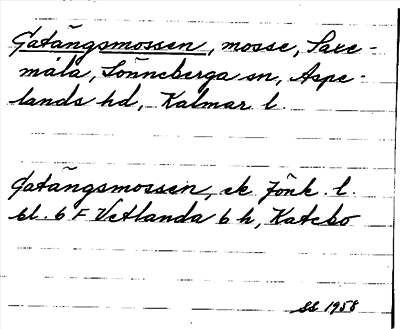 Gatängsmossen, mosse, Saxe-
måla, Lönneberga sn, Aspe-
lands hd, Kalmar l.
Gatängsmossen, ek Jönk. l.
bl. 6 F Vetlanda 6 h, Katebo
SS 1958